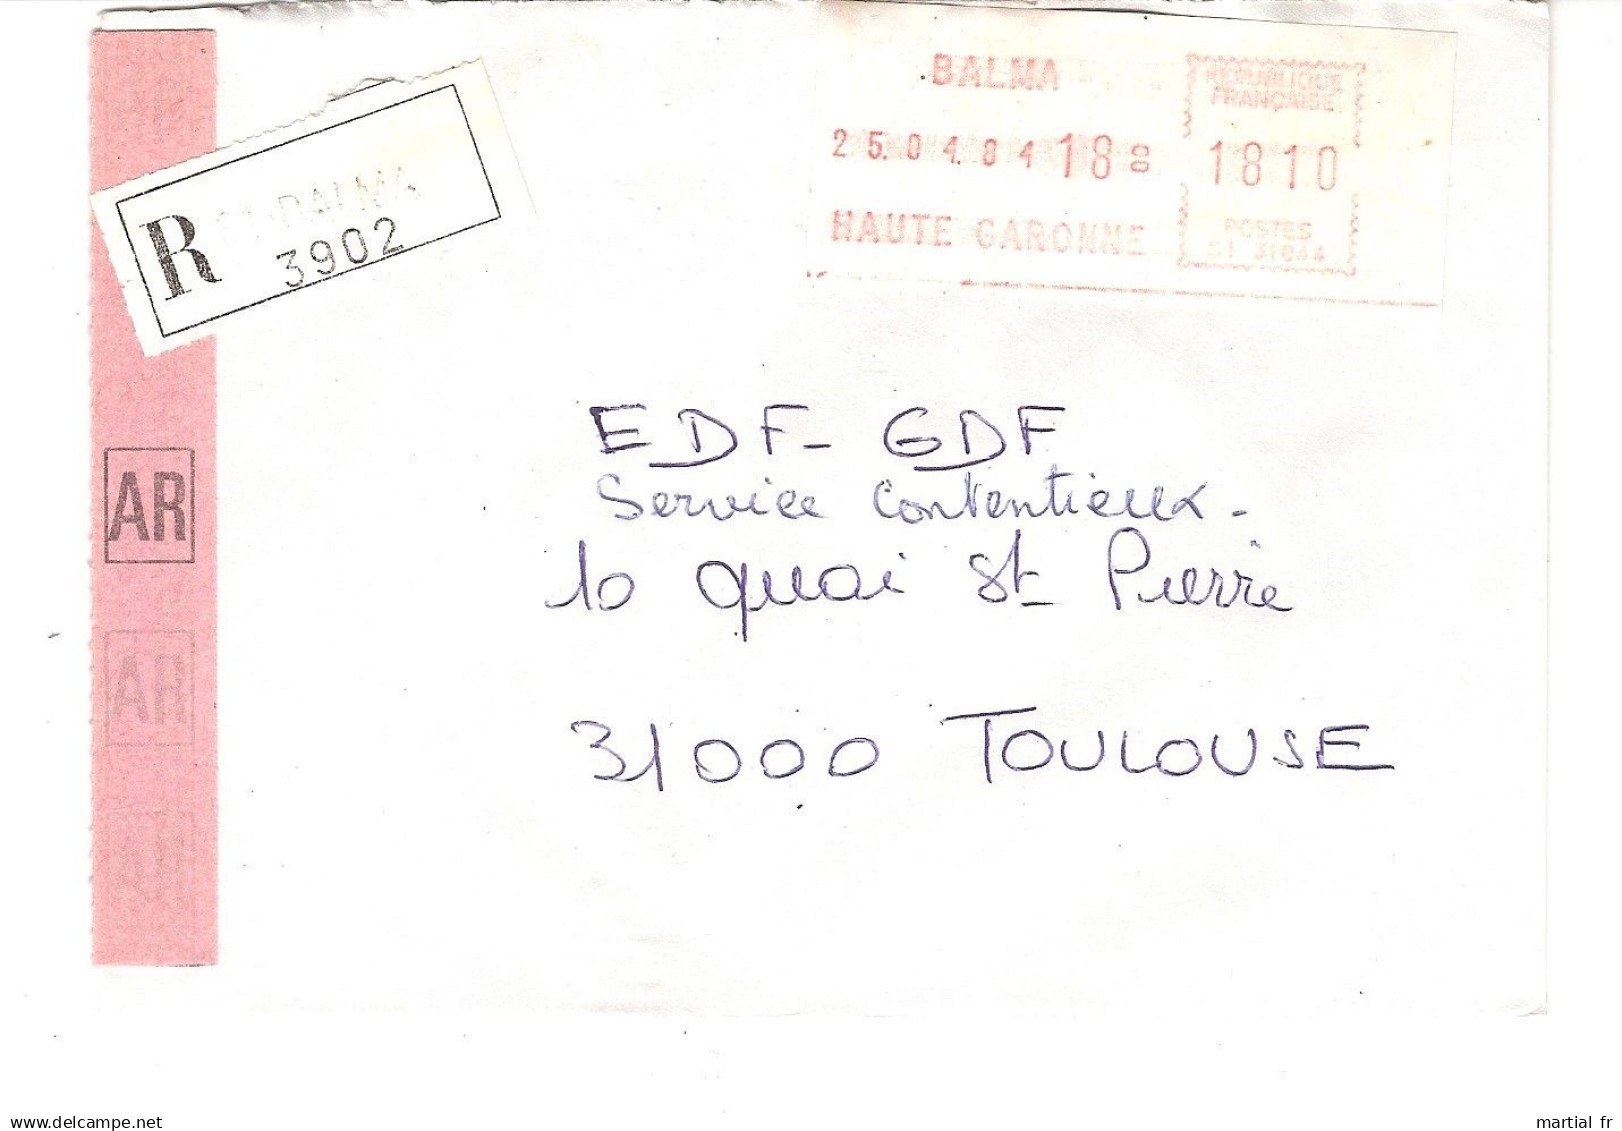 BALMA
RÉPUBLIQUE
FRANÇAISE
25.04.84 18 00
1810
HAUTE GARONNE
POSTES
S1 31044
R
BALMA
3902
AR
AR
AR
EDF-GDF
Service Contentieux-
10 quai St Pierre
31000 TOULOUSE
www.delcampe.net
martial fr